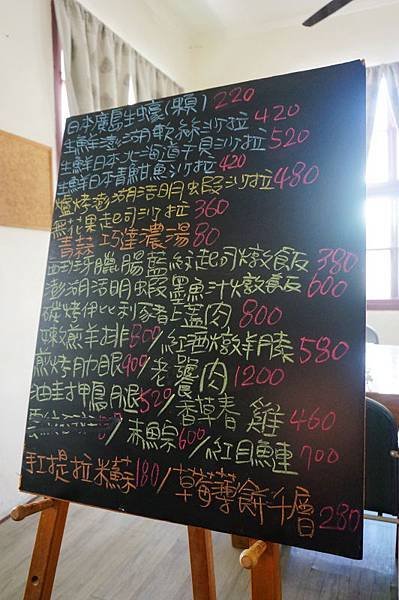 日本廣島生蠔(顆) 220
生鮮澎湖軟絲沙拉 420
生鮮日本北海道干貝沙拉 520
生鮮日本青魽魚沙拉 420
爐烤澎湖活明蝦沙拉 480
無花果起司沙拉 360
青蒜巧達濃湯 80
西班牙臘腸藍紋起司燉飯 380
澎湖活明蝦墨魚汁燉飯 600
碳烤伊比利豬上蓋肉 800
嫩煎羊排 800/紅酒燉羊膝 580
煎烤肋眼 900/老饕肉 1200
油封鴨腿 520/香草春雞 460
/赤鯮 600/紅目鰱 700
手工提拉米蘇 180/草莓薄餅千層 280